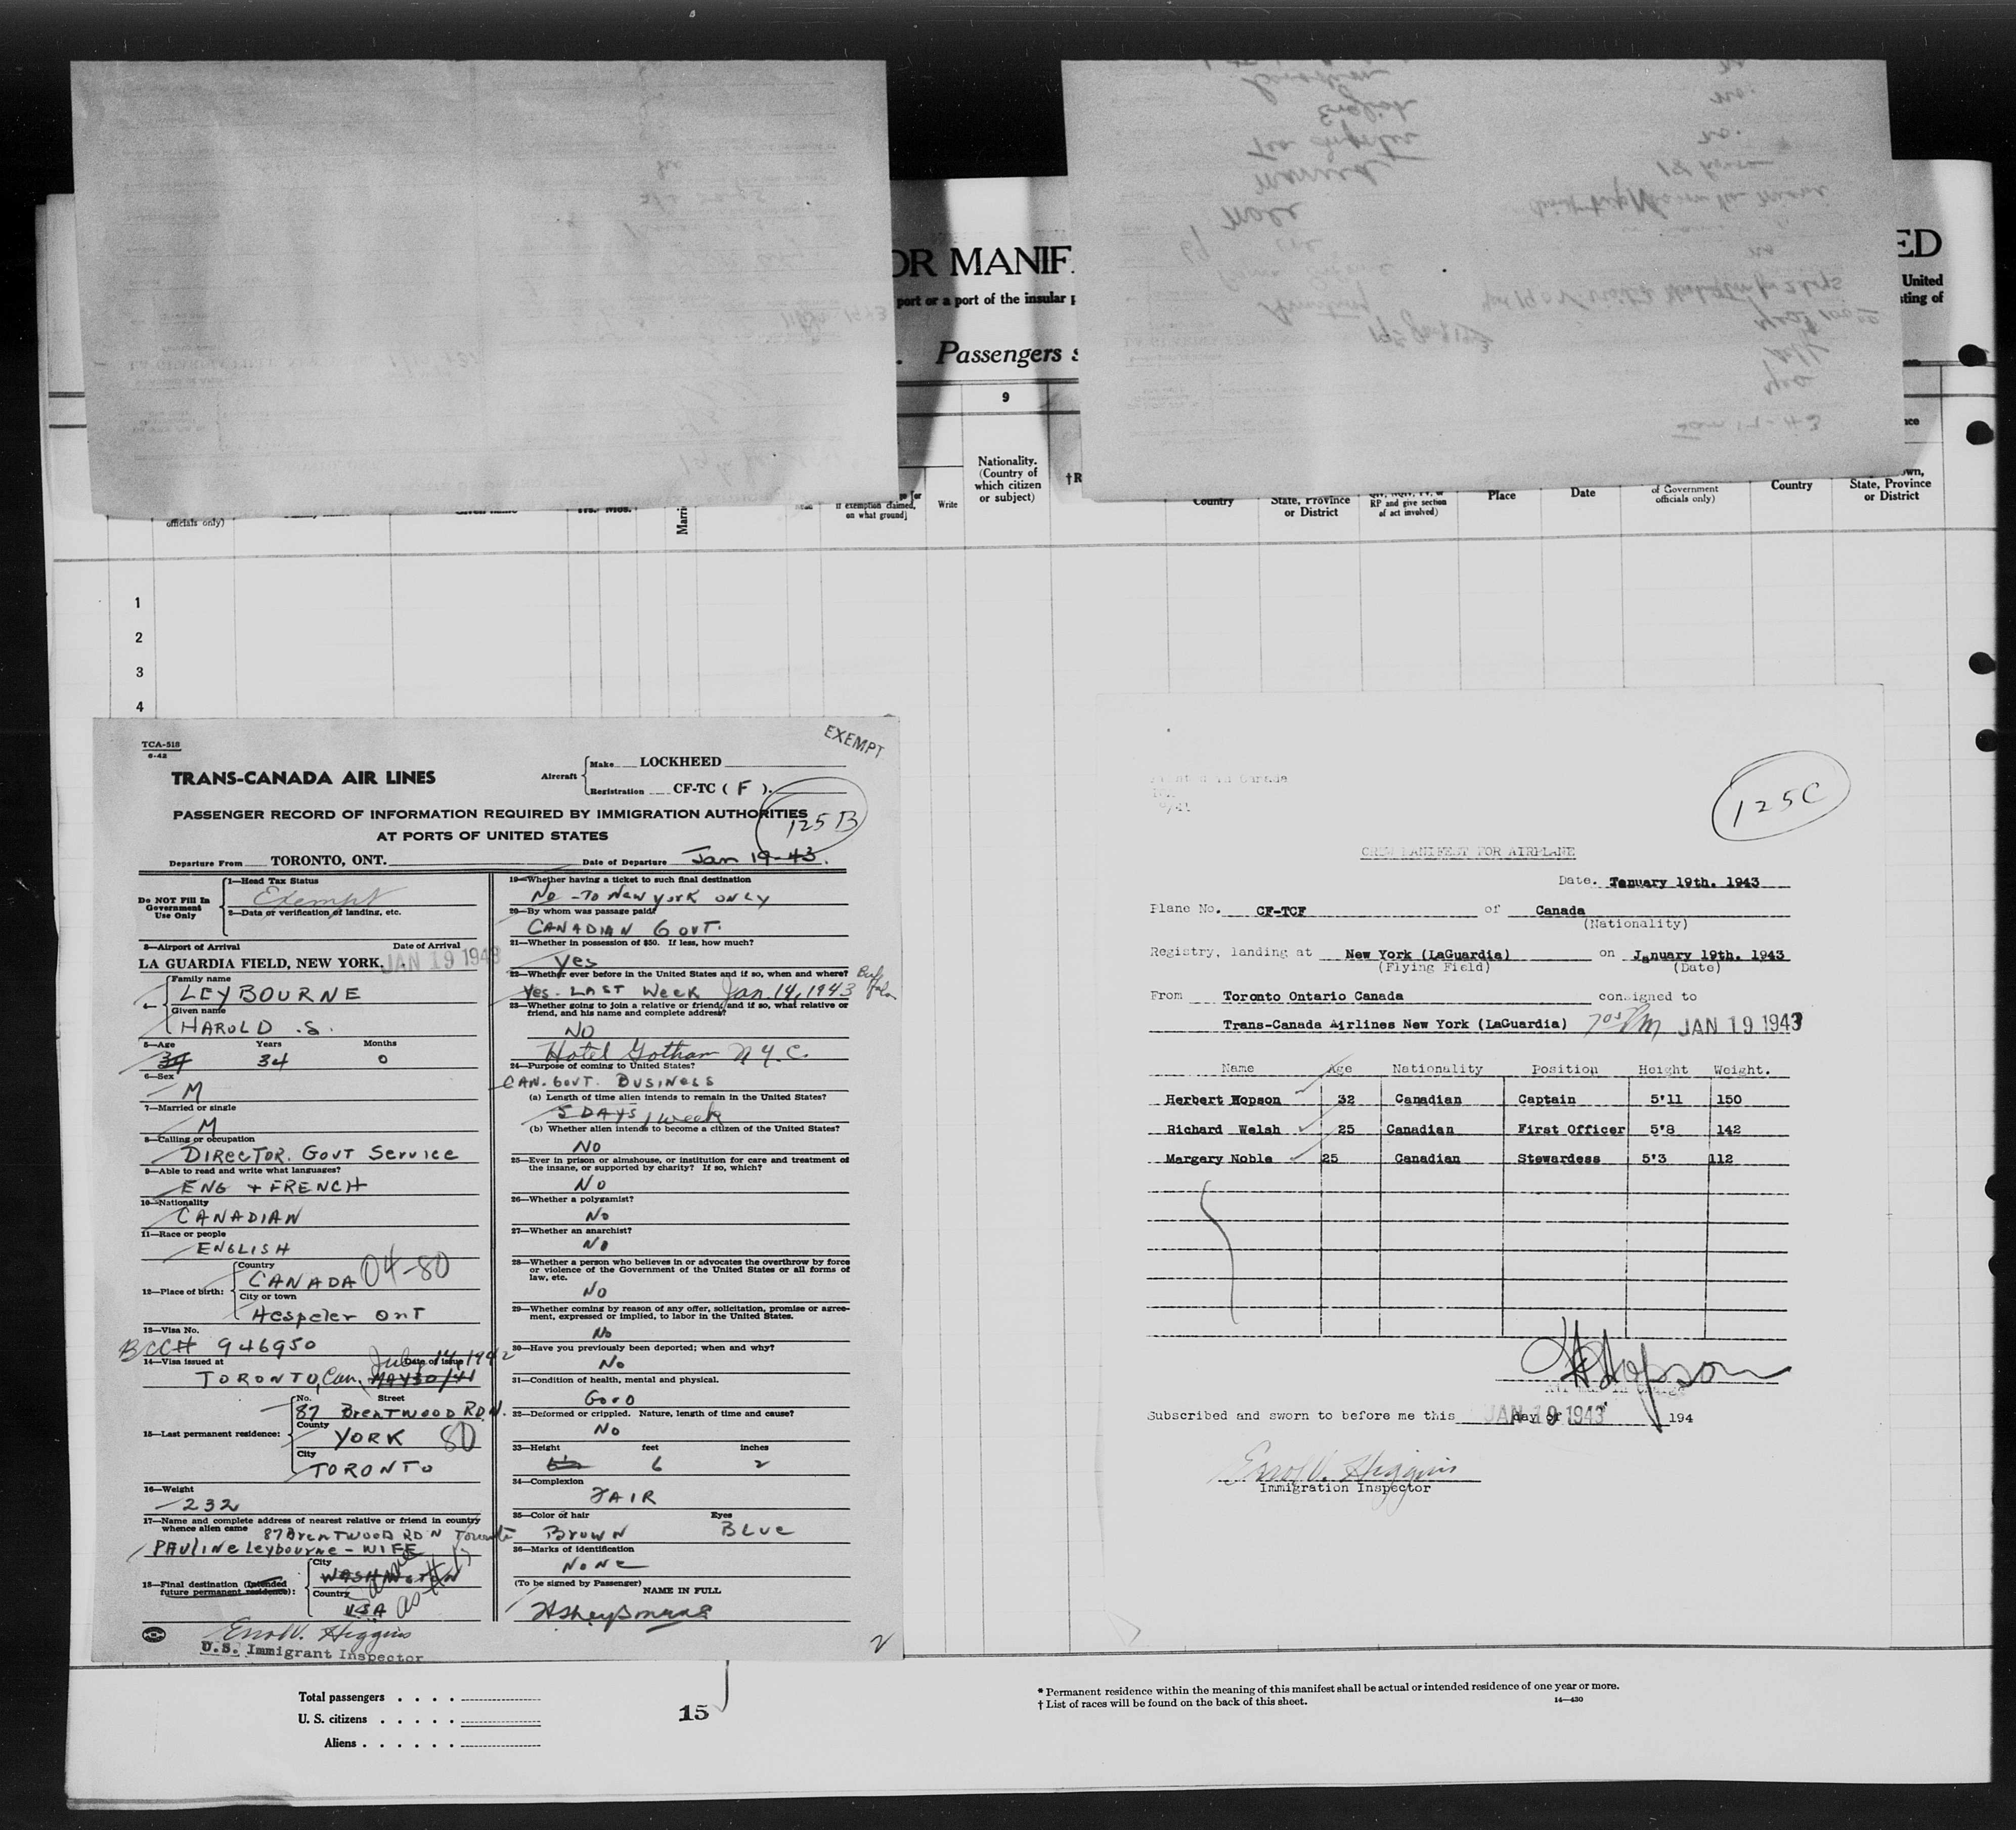 OR MANIF
ED
port or a port of the insular
United
sting of
Passengers
9
Nationality.
(Country of
which citizen
or subject)
officials only)
if exemption claimed,
on what ground]
Write
Country
State, Province
or District
RP and give section
of act involved)
Place
Date
of Government
officials only)
Country
State, Province
or District
1
2
3
4
TCA-518
6-42
EXEMPT
TRANS-CANADA AIR LINES
Aircraft
Make LOCKHEED
Registration CF-TC ( F ).
125 B
PASSENGER RECORD OF INFORMATION REQUIRED BY IMMIGRATION AUTHORITIES
AT PORTS OF UNITED STATES
Departure From TORONTO, ONT. Date of Departure Jan 19-43.
Do NOT Fill In
Government
Use Only
1—Head Tax Status
Exempt
2—Data or verification of landing, etc.
3—Airport of Arrival Date of Arrival
LA GUARDIA FIELD, NEW YORK. JAN 19 1943
4— Family name
LEYBOURNE
Given name
HAROLD .S.
5—Age Years Months
34 34 0
6—Sex
M
7—Married or single
M
8—Calling or occupation
DIRECTOR. GOVT Service
9—Able to read and write what languages?
ENG + FRENCH
10—Nationality
CANADIAN
11—Race or people
ENGLISH
12—Place of birth:
Country
CANADA 04-80
City or town
Hespeler ONT
13—Visa No.
BCC# 946950
14—Visa issued at Date of issue July 14, 1942
TORONTO, Can. MAY 30/41
15—Last permanent residence:
No. Street
87 BRENTWOOD RD N.
County
YORK 80
City
TORONTO
16—Weight
232
17—Name and complete address of nearest relative or friend in country
whence alien came 87 BRENTWOOD RD N Toronto
PAULINE Leybourne - WIFE
18—Final destination (Intended
future permanent residence):
City
WASHINGTON
Country
USA
Same as #17
Errol V. Higgins
U.S. Immigrant Inspector
19—Whether having a ticket to such final destination
No - TO New York ONLY
20—By whom was passage paid?
CANADIAN GOVT.
21—Whether in possession of $50. If less, how much?
Yes
22—Whether ever before in the United States and if so, when and where? Buffalo
Yes. LAST Week Jan. 14, 1943
23—Whether going to join a relative or friend, and if so, what relative or
friend, and his name and complete address?
NO
Hotel Gotham N.Y.C.
24—Purpose of coming to United States?
CAN. GOVT. BUSINESS
(a) Length of time alien intends to remain in the United States?
5 DAYS 1 week
(b) Whether alien intends to become a citizen of the United States?
NO
25—Ever in prison or almshouse, or institution for care and treatment of
the insane, or supported by charity? If so, which?
NO
26—Whether a polygamist?
No
27—Whether an anarchist?
NO
28—Whether a person who believes in or advocates the overthrow by force
or violence of the Government of the United States or all forms of
law, etc.
NO
29—Whether coming by reason of any offer, solicitation, promise or agree-
ment, expressed or implied, to labor in the United States.
No
30—Have you previously been deported; when and why?
No
31—Condition of health, mental and physical.
GOOD
32—Deformed or crippled. Nature, length of time and cause?
No
33—Height feet inches
6 2
34—Complexion
FAIR
35—Color of hair Eyes
BROWN BLUE
36—Marks of identification
NONE
(To be signed by Passenger)
NAME IN FULL
HSLeybourne
2
125C
CREW MANIFEST FOR AIRPLANE
Date. January 19th. 1943
Plane No. CF-TCF of Canada
(Nationality)
Registry, landing at New York (LaGuardia) on January 19th. 1943
(Flying Field) (Date)
From Toronto Ontario Canada consigned to
Trans-Canada Airlines New York (LaGuardia) 705 PM JAN 19 1943
Name Age Nationality Position Height Weight.
Herbert Hopson 32 Canadian Captain 5'11 150
Richard Welsh 25 Canadian First Officer 5'8 142
Margery Noble 25 Canadian Stewardess 5'3 112
H Hopson
Subscribed and sworn to before me this JAN 19 1943 day of 194
Errol V. Higgins
Immigration Inspector
Total passengers . . . .
U. S. citizens . . . . .
Aliens . . . . . .
15
* Permanent residence within the meaning of this manifest shall be actual or intended residence of one year or more.
† List of races will be found on the back of this sheet.
14—430